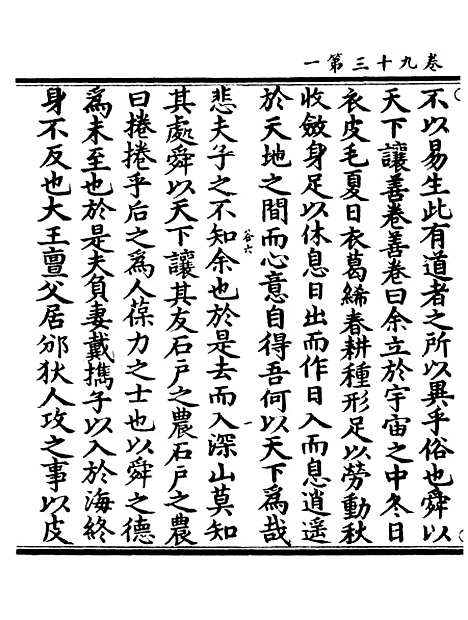 卷九十三第一
不以易生此有道者之所以異乎俗也舜以
天下讓善卷善卷曰余立於宇宙之中冬日
衣皮毛夏日衣葛絺春耕種形足以勞動秋
收斂身足以休息日出而作日入而息逍遥
於天地之間而心意自得吾何以天下爲哉
悲夫子之不知余也於是去而入深山莫知
其處舜以天下讓其友石戸之農石戸之農
曰捲捲乎后之爲人葆力之士也以舜之德
爲未至也於是夫負妻戴擕子以入於海終
身不反也大王亶父居邠狄人攻之事以皮
谷六
一